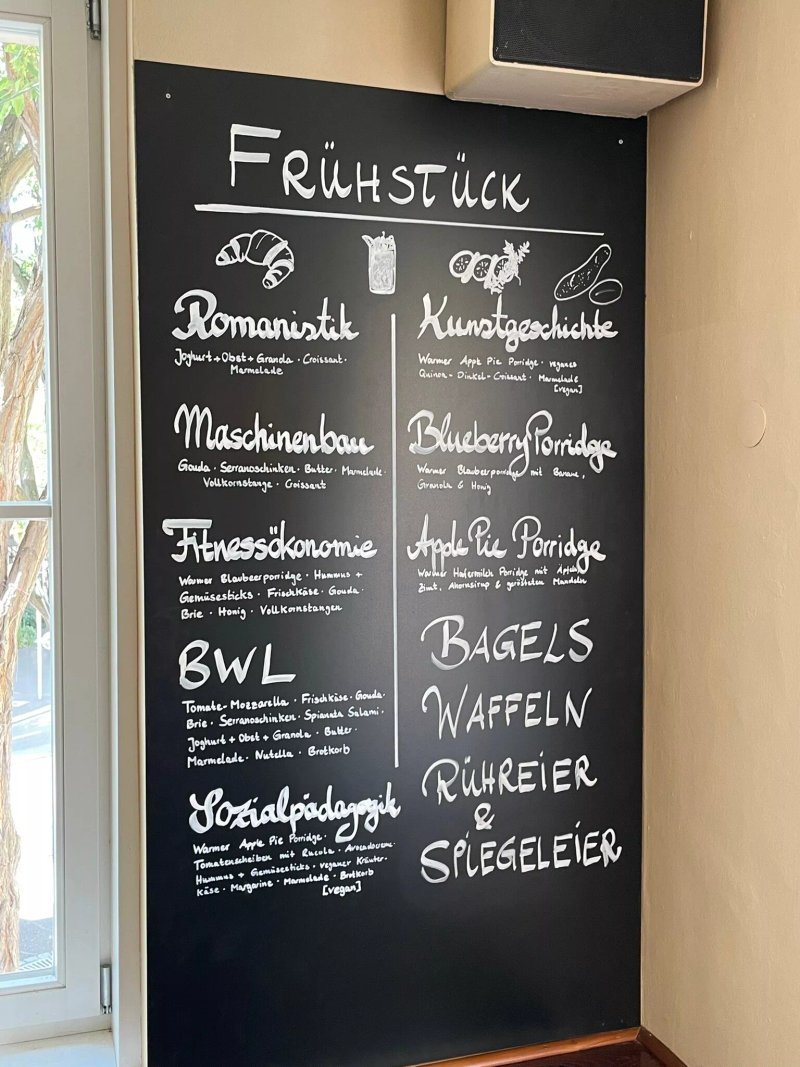 FRÜHSTÜCK
Romanistik
Joghurt + Obst + Granola · Croissant ·
Marmelade
Maschinenbau
Gouda · Serranoschinken · Butter · Marmelade ·
Vollkornstange · Croissant
Fitnessökonomie
Warmer Blaubeerporridge · Hummus +
Gemüsesticks · Frischkäse · Gouda ·
Brie · Honig · Vollkornstangen
BWL
Tomate-Mozzarella · Frischkäse · Gouda ·
Brie · Serranoschinken · Spianata Salami ·
Joghurt + Obst + Granola · Butter ·
Marmelade · Nutella · Brotkorb
Sozialpädagogik
Warmer Apple Pie Porridge ·
Tomatenscheiben mit Rucola · Avocadocreme ·
Hummus + Gemüsesticks · veganer Kräuter-
käse · Margarine · Marmelade · Brotkorb
[vegan]
Kunstgeschichte
Warmer Apple Pie Porridge · veganes
Quinoa-Dinkel-Croissant · Marmelade
[vegan]
Blueberry Porridge
Warmer Blaubeerporridge mit Banane,
Granola & Honig
Apple Pie Porridge
Warmer Hafermilch Porridge mit Äpfeln,
Zimt, Ahornsirup & gerösteten Mandeln
BAGELS
WAFFELN
RÜHREIER
&
SPIEGELEIER